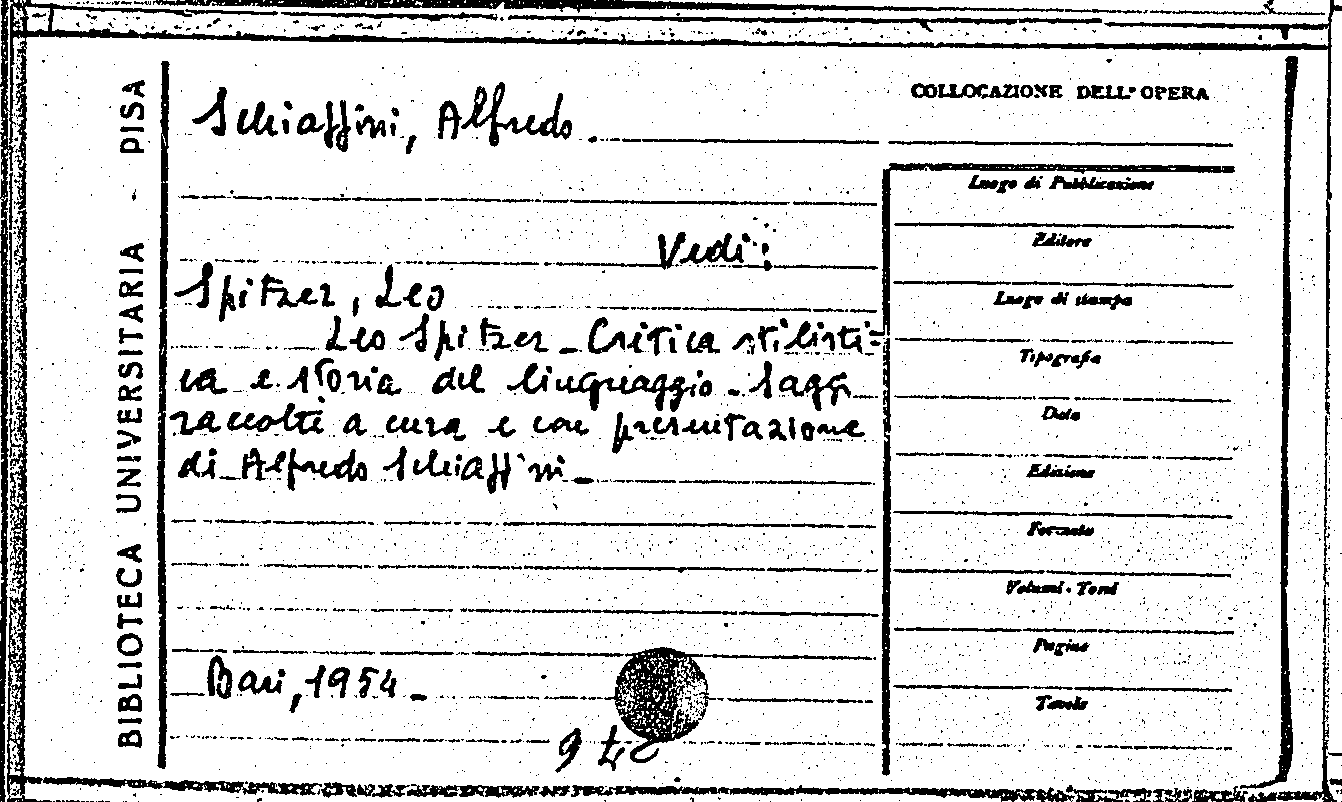 BIBLIOTECA UNIVERSITARIA - PISA
COLLOCAZIONE DELL'OPERA
Schiaffini, Alfredo.
Vedi:
Spitzer, Leo
Leo Spitzer - Critica stilisti-
ca e storia del linguaggio - Saggi
raccolti a cura e con presentazione
di Alfredo Schiaffini -
Bari, 1954 -
Luogo di Pubblicazione
Editore
Luogo di stampa
Tipografia
Data
Edizione
Formato
Volumi - Tomi
Pagine
Tavole